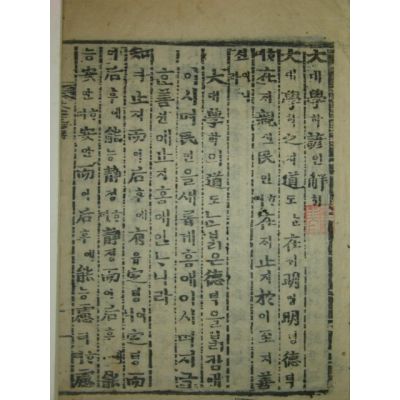 大대學학諺언解ᄒᆡ
大대學학之지道도ᄂᆞᆫ在ᄌᆡ明명明명德덕
ᄒᆞ며在ᄌᆡ親신民민ᄒᆞ며在ᄌᆡ止지於어至지善
션이니라
大대學학의道도ᄂᆞᆫᄇᆞᆰ은德덕을ᄇᆞᆰ킴애
이시며民민을새롭게홈애이시며지극
ᄒᆞᆫ善션에止지홈애인ᄂᆞ니라
知디止지而이后후에有유定뎡이니定뎡而
이后후에能능靜졍ᄒᆞ며靜졍而이后후에能
능安안ᄒᆞ며安안而이后후에能능慮려ᄒᆞ며